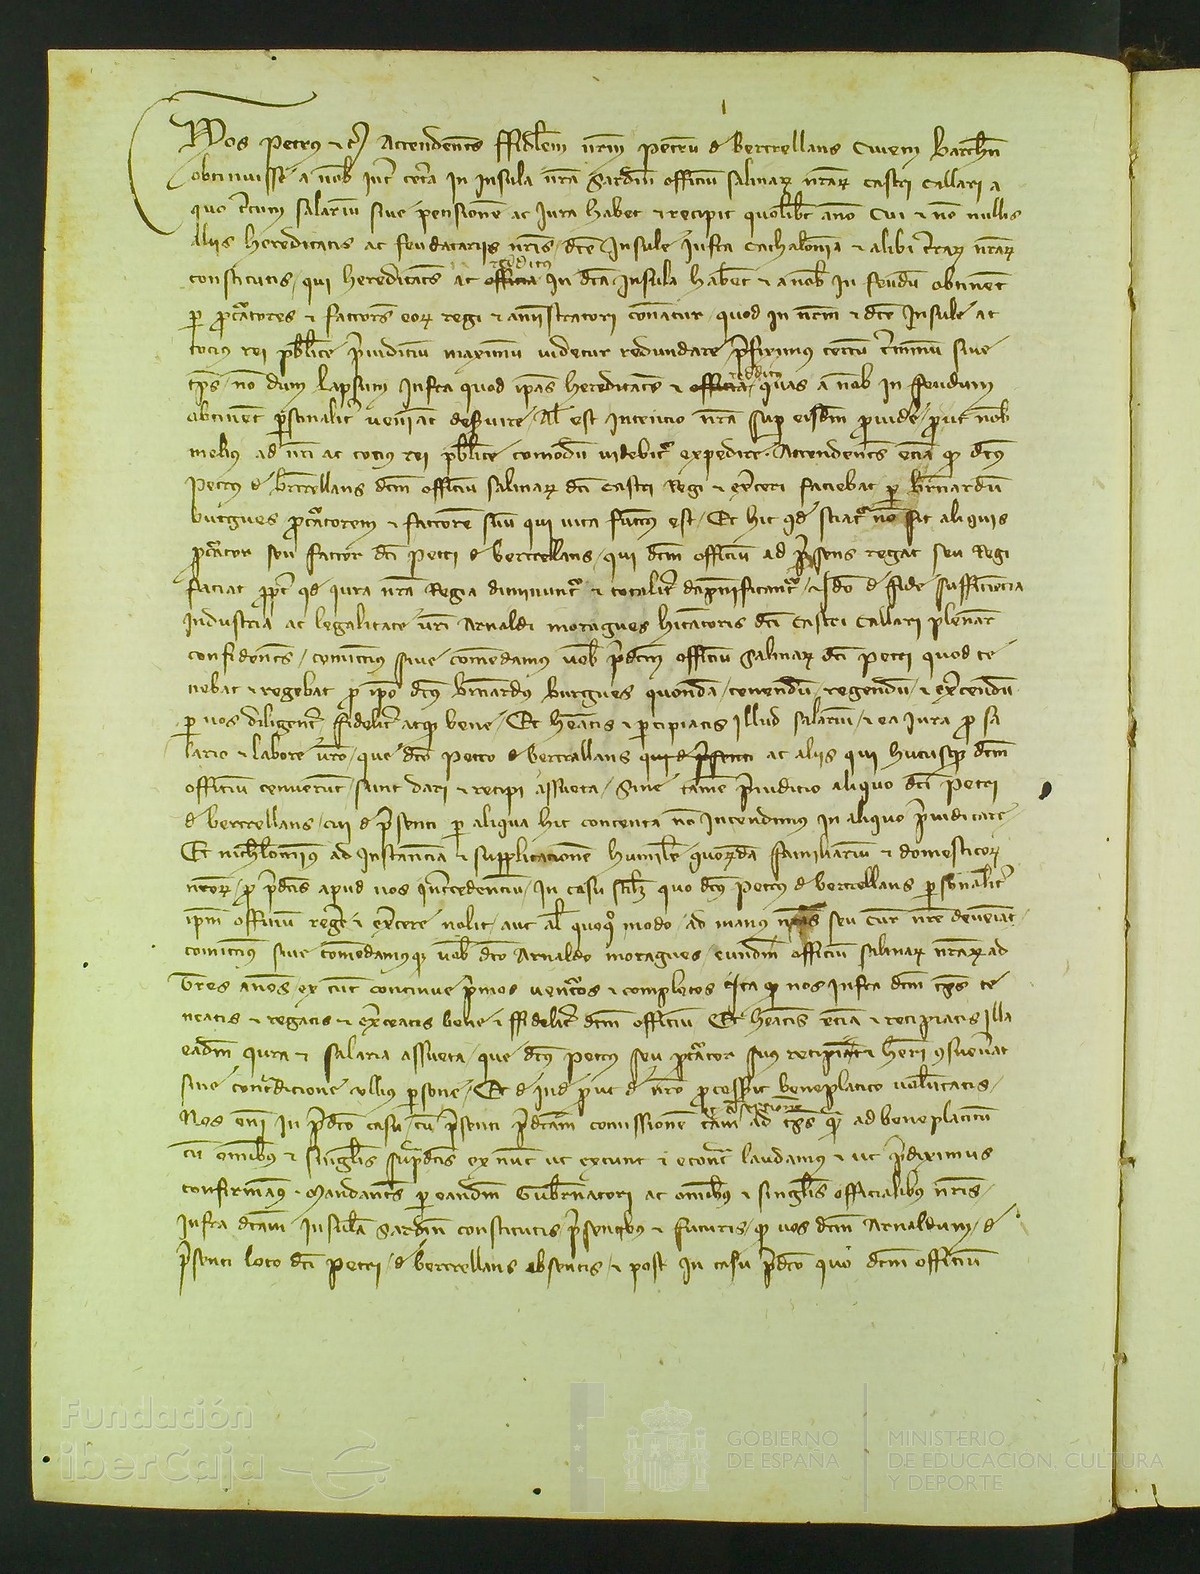 Nos Petrus etc Attendentes ffidelem nrm Petrum de bertrellans Civem Barchn
obtinuisse a nob int cetera in insula nra Sardin officiu salinar nrar castri callari a
quo certum salariu sive pensionem ac jura habet et recipit quolibet anno Cui et no nullis
aliis hereditatis ac feudatariis nris dce insule infra cathalonia et alibi terrar nrar
constitutis qui hereditates ac officia redditus in dca insula habent et a nob in feudu obtinent
per procuratores et factores eor regi et aministratori conatur quod in nrm et dce insule ac
tocius rei publice prejudiciu maximu videtur redundare prefiximus certu terminu sive
tps no dum lapsum infra quod ipsas hereditates et officia redditus quas a nob in ffeudum
obtinent personalit veniant deservire Al est intentio nra sup eisdm provide prout nob
melius ad nri ac tocius rei publice comodu videbit expedire Attendentes ecia q dcus
Petrus de bertrellans dcm officiu salinar dci castri Regi et exerceri faciebat per Bernardu
burgues procuratorem et factore suu qui vita functus est Et hic qd sciatur no sit aliquis
procurator seu factor dci Petri de bertrellans qui dcm officiu ad presens regat seu Regi
faciat propt qd jura nra Regia diminuunt et totalit dampnificant Ido de fide sufficiencia
industria ac legalitate vri Arnaldi moragues hitatoris dci castri callari plenar
confidentes comittimus sive comendamus vob predcm officiu salinar dci Petri quod te
nebat et regebat pro ipo dcus bernardus burgues quonda tenendu regendu et exercendu
per vos diligent ffidelit atq bene Et heatis et percipiatis illud salariu et ea jura pro sa
lario et labore vro que dco Petro de bertrallans qui de presenti ac aliis qui hucusq dcm
officiu tenuerut sunt dari et recipi assueta Sine tame prejudicio aliquo dci Petri
de bertrellans cui de presenti per aliqua hic contenta no intendimus in aliquo prejudicare
Et nichilominus ad instancia et supplicatione humile quorda familiariu et domesticor
nror pro predcis apud nos intercedenciu in casu scilz quo dcus Petrus de bertrellans personalit
ipm officiu regere et exercere nolit aut al quoqo modo ad manus nras seu cur nre deveniat
comittimus sive comendamusq vob dco Arnaldo moragues eundm officiu salinar nrar ad
Tres anos ex tunc continue primos venturos et completos Ita q vos infra dcm tps te
neatis et regatis et exerceatis bene et ffidelit dcm officiu Et heatis ecia et recipiatis illa
eadm jura et salaria assueta que dcus Petrus seu procurator suus recipiat et heri consuevat
sine contradictione ullius persone Et de inde prout de nro processerit beneplacito voluntatis
Nos eni in predco casu cu presenti predcam comissione tam ad tps qm ad beneplacitu
cu omibus et singulis supradcis ex nunc ut extunc et econtra laudamus et ut prediximus
confirmamus Mandantes per eandm Gubernatori ac omibus et singulis officialibus nris
infra dcam insula Sardin constitutis presentibus et futuris q vos dcm Arnaldum de
presenti loco dci Petri de bertrellans absentis et post in casu predco quo dcm officiu
Fundación
iberCaja
GOBIERNO
DE ESPAÑA
MINISTERIO
DE EDUCACIÓN, CULTURA
Y DEPORTE